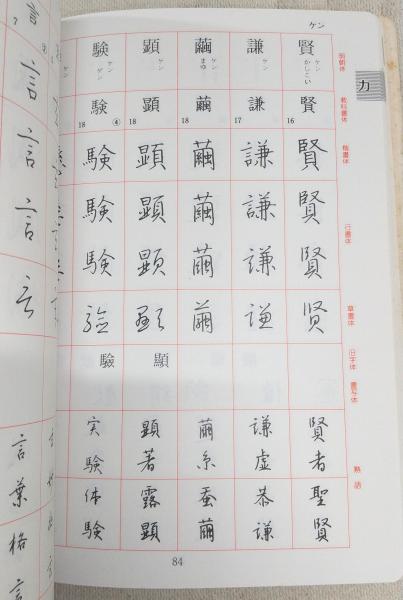 ケン
カ
明朝体
教科書体
楷書体
行書体
草書体
旧字体 書写体
熟語
賢
ケン
かしこい
賢
16
賢
賢
賢
賢
賢者
聖賢
謙
ケン
謙
17
謙
謙
謙
謙
謙虚
恭謙
繭
ケン
まゆ
繭
18
繭
繭
繭
繭
繭糸
蚕繭
顕
ケン
顕
18
顕
顕
顕
顕
顯
顕著
露顕
験
ケン
ゲン
験
18 ④
験
験
験
験
驗
実験
体験
84
言
言
言
言
言葉
格言